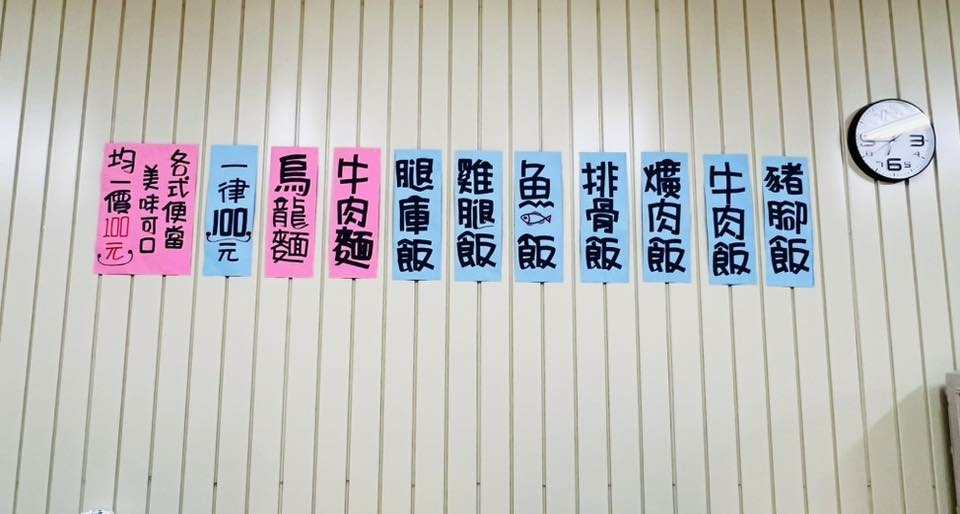 豬腳飯
牛肉飯
爌肉飯
排骨飯
魚飯
雞腿飯
腿庫飯
牛肉麵
烏龍麵
一律100元
各式便當
美味可口
均一價100元
3
5
6
7